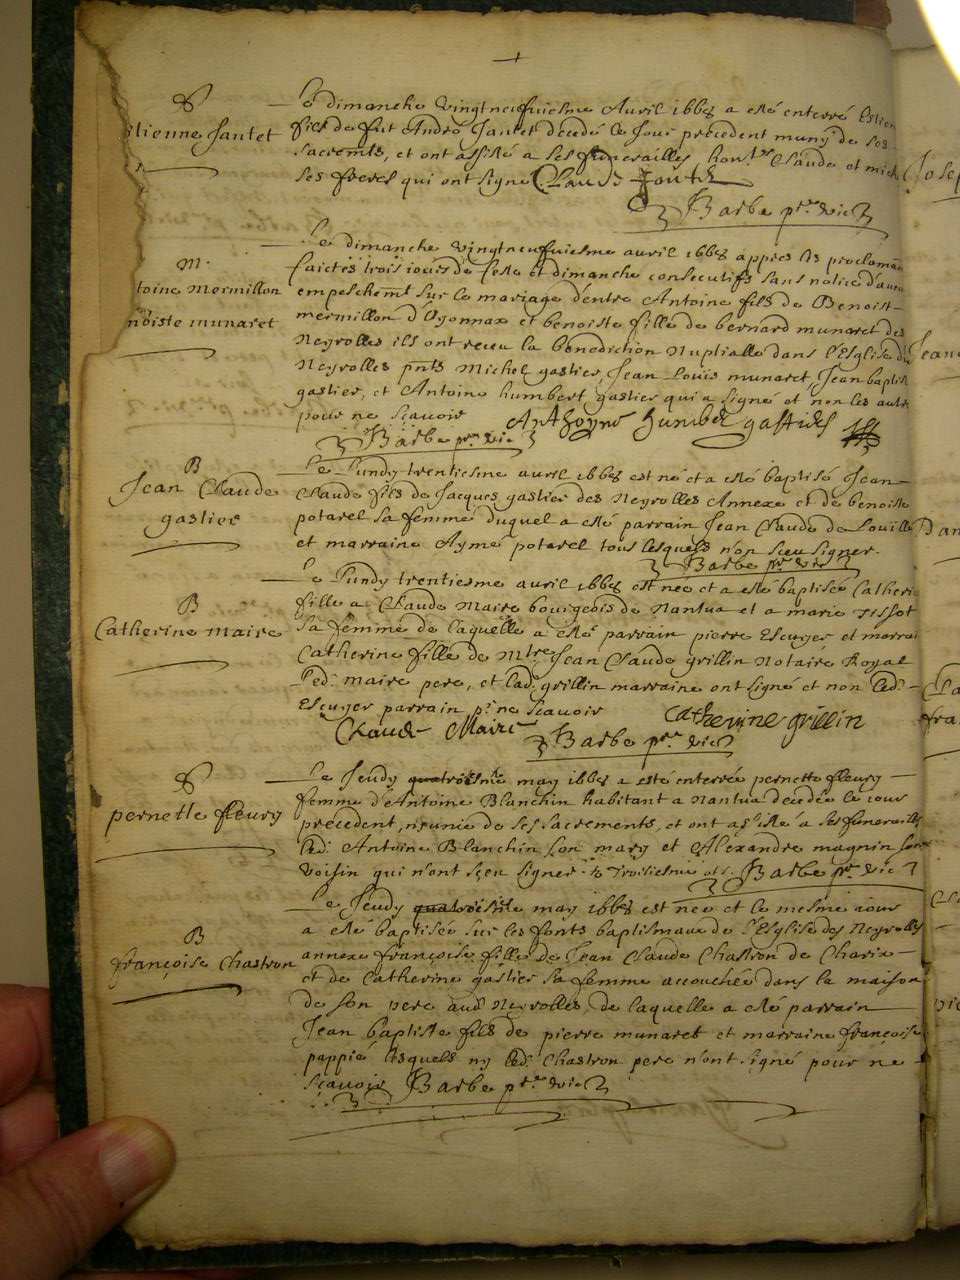 S
Estienne Jantet
Le dimanche vingtneufuiesme Avril 1668 a esté enterré Estien
fils de fut André Jantet décédé le Jour précédent muny de ses
Sacremts, et ont assisté a ses funerailles honstes Claude et mich
ses freres qui ont signé Claude Jantet
Barbe ptre vic
M.
toine Mermillon
noiste munaret
Le dimanche vingtneufuiesme auril 1668 appres les proclama
faictes trois iours de feste et dimanche consecutifs sans notice d'aucu
empeschemt sur le mariage d'entre Antoine fils de Benoist
mermillon d'Oyonnax et benoiste fille de bernard munaret des
Neyrolles ils ont receu la benediction Nuptialle dans l'Eglise d
Neyrolles pnts Michel gastier, Jean Louis munaret, Jean baptis
gastier, et Antoine humbert gastier qui a signé et non les autr
pour ne scauoir Anthoyne humbert gastier
Barbe ptre vic
B
Jean Claude
gastier
Le Lundy trentiesme auril 1668 est né et a esté baptisé Jean
Claude fils de Jacques gastier des Neyrolles Annexe et de benoiste
potarel sa femme duquel a esté parrain Jean Claude de Louille
et marraine Aymé potarel tous lesquels n'on sceu signer.
Barbe ptre vic
B
Catherine Maire
Le Lundy trentiesme auril 1668 est née et a esté baptisée Catheri
fille a Claude Maire bourgeois de Nantua et a marie tissot
sa femme de laquelle a esté parrain pierre Escuyer et marrai
Catherine fille de Mtre Jean Claude grillin Notaire Royal
Led. maire pere, et lad. grillin marraine ont signé et non led.
Escuyer parrain pr ne scauoir
Claude Maire catherine grillin
Barbe ptre vic
S
pernette fleury
Le Jeudy quatriesme may 1668 a esté enterrée pernette fleury
femme d'Antoine Blanchin habitant a Nantua décédée le iour
precedent, munie de ses sacrements, et ont assisté a ses funeraille
led. Antoine Blanchin son mary et Alexandre magnin son
voisin qui n'ont sçeu signer. Troisiesme Barbe ptre vic
B
françoise Chastron
Le Jeudy quatriesme may 1668 est née et le mesme iour
a esté baptisée sur les fonts baptismaux de l'Eglise des Neyrolles
annexe françoise fille de Jean Claude Chastron de Charix
et de Catherine gastier sa femme accouchée dans la maison
de son pere aud. Neyrolles, de laquelle a esté parrain
Jean baptiste fils de pierre munaret et marraine françoise
pappié lesquels ny led. Chastron pere n'ont signé pour ne
scauoir Barbe ptre vic